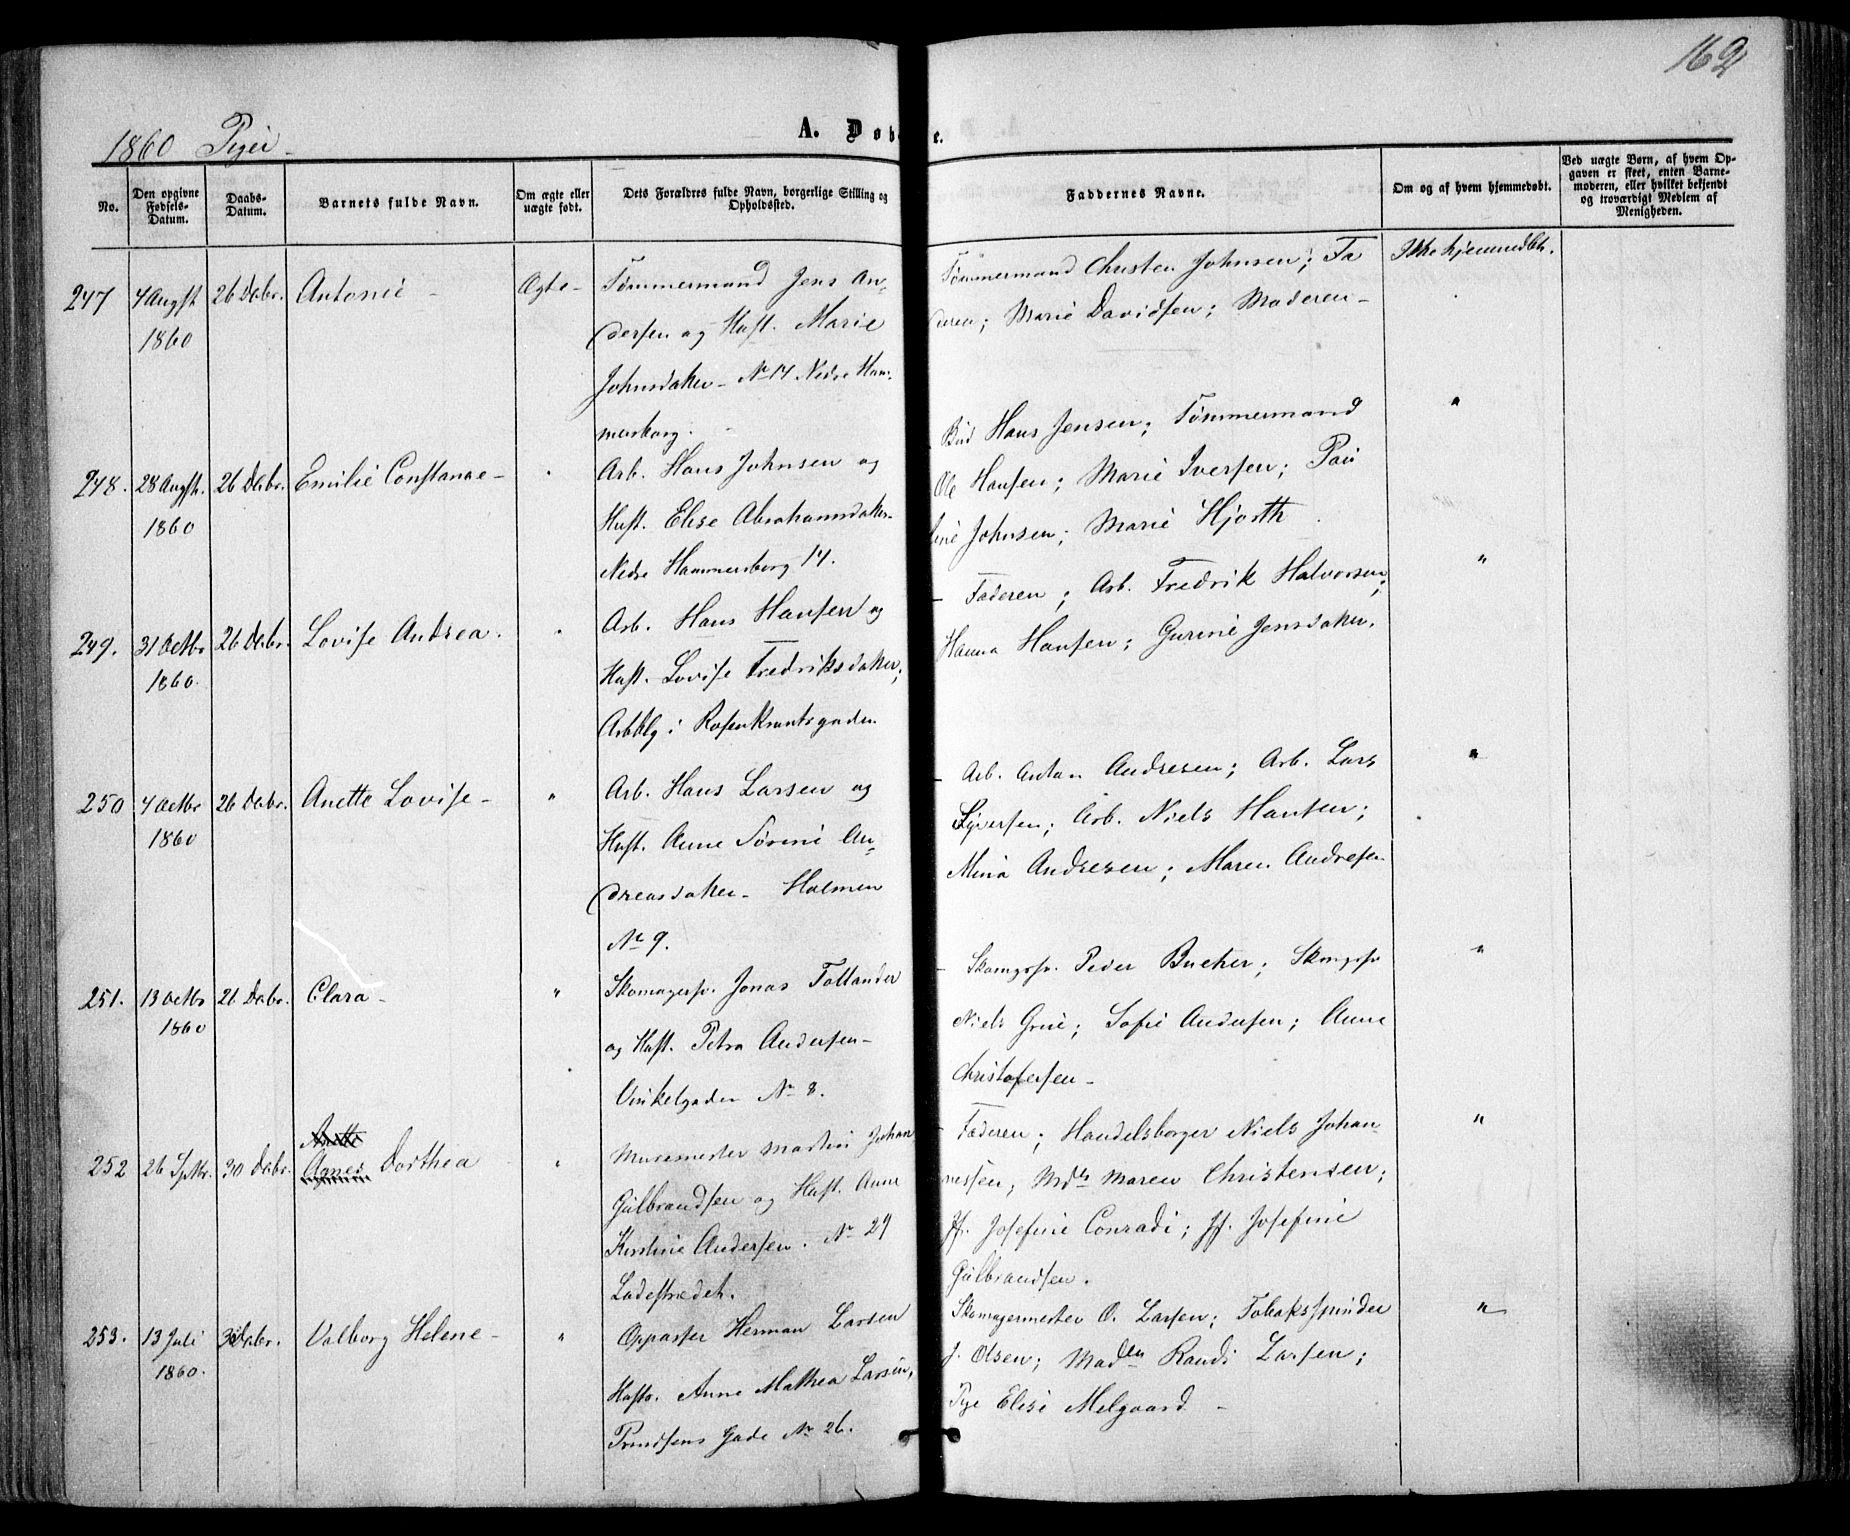 162
1860 Piger
A. Døb e.
No.
Den opgivne Fødsels-Datum.
Daabs-Datum.
Barnets fulde Navn.
Om ægte eller uægte født.
Dets Forældres fulde Navn, borgerlige Stilling og Opholdssted.
Faddernes Navne.
Om og af hvem hjemmedøbt.
Ved uægte Børn, af hvem Opgaven er skeet, enten Barnemoderen, eller hvilket bekjendt og troværdigt Medlem af Menigheden.
247 4 Augst 1860 26 Decbr. Antonie - Ægte -
Tømmermand Jens An-
dersen og Hust. Marie
Johnsdatter - No 14 Nedre Ham-
mersborg.
Tømmermand Christen Johnsen; Fa
deren; Marie Davidsen; Moderen -
Ikke hjemmedøbt.
248. 28 Augst. 1860 26 Decbr. Emilie Constance - "
Arb. Hans Johnsen og
Hust. Elise Abrahamsdatter -
Nedre Hammersborg 14.
Bud Hans Jensen; Tømmermand
Ole Hansen; Marie Iversen; Pau
line Johnsen; Marie Hjorth
"
249. 31 Octbr 1860. 26 Decbr. Lovise Andrea. "
Arb. Hans Hansen og
Hust. Lovise Fredriksdatter;
Arbblg i Rosenkrantsgaden
- Faderen; Arb. Fredrik Halvorsen;
Hanna Hansen; Gurine Jensdatter.
"
250 4 Octbr 1860 26 Decbr. Anette Lovise - "
Arb. Hans Larsen og
Hust. Anne Sørine An-
dreasdatter - Holmen
No 9.
- Arb. Anton Andresen; Arb. Lars
Syversen; Arb. Niels Hansen;
Mina Andresen; Maren Andresen
"
251. 13 Octbr 1860 26 Decbr. Clara - "
Skomagersv. Jonas Tollander
og Hust. Petra Andersen -
Vinkelgaden No 8.
- Skomgsv. Peder Bucher; Skmgsv
Niels Grue; Sofie Andersen; Anne
Christofersen -
"
252 26 Sptbr. 30 Decbr. Agnes Dorthea "
Muremester Martin Johan
Gulbrandsen og Hust. Anne
Kirstine Andersen. No 29
Ladestrædet.
- Faderen; Handelsborger Niels Johan-
nessen; Mdm Maren Christensen;
Jf. Josefine Conradi; Jf. Josefine
Gulbrandsen.
"
253. 13 Juli 1860. 30 Decbr. Valborg Helene - "
Oppasser Herman Larsen
Hustr. Anne Mathea Larsen,
Prindsens Gade No 26.
Skomagermester O. Larsen; Tobaksspinder
J. Olsen; Madm Randi Larsen;
Pge Elise Melgaard -
"